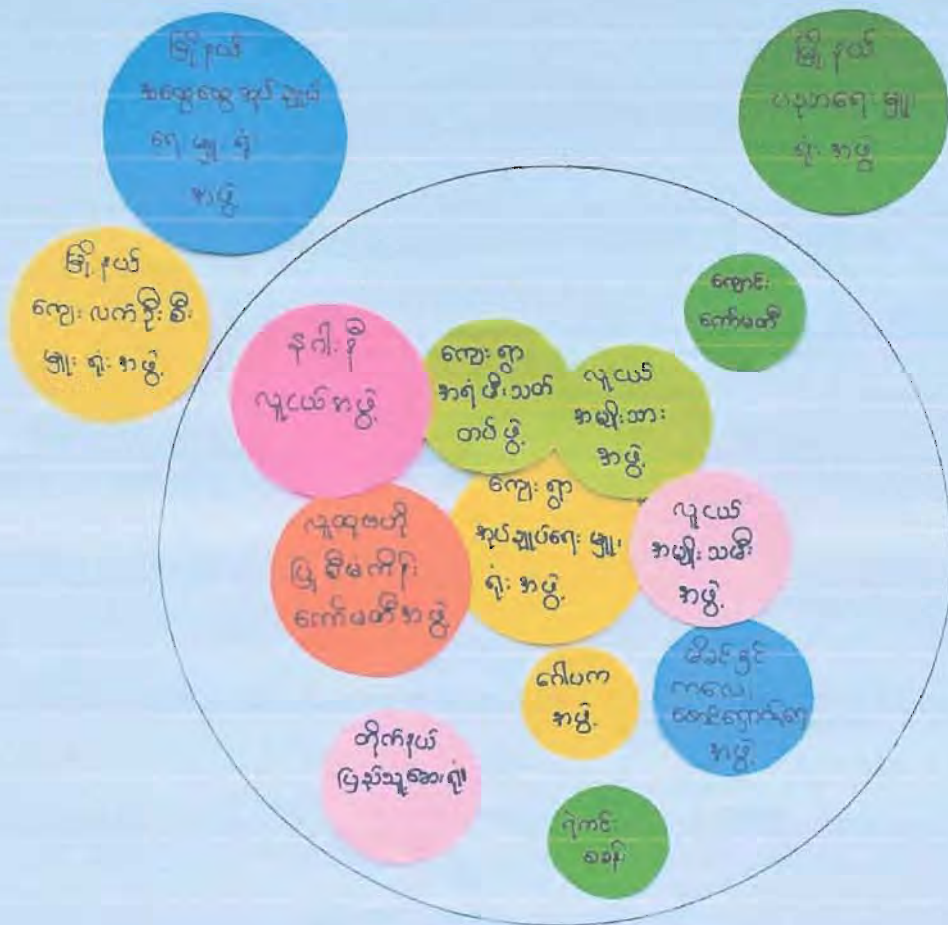 မြို့နယ်
အထွေထွေအုပ်ချုပ်
ရေးမှူးရုံး
အဖွဲ့
မြို့နယ်
ပညာရေးမှူး
ရုံးအဖွဲ့
မြို့နယ်
ကျေးလက်ဦးစီး
မှူးရုံးအဖွဲ့
ကျောင်း
ကော်မတီ
နဂါးနီ
လူငယ်အဖွဲ့
ကျေးရွာ
အရံမီးသတ်
တပ်ဖွဲ့
လူငယ်
အမျိုးသား
အဖွဲ့
လူထုဗဟို
ပြုစီမံကိန်း
ကော်မတီအဖွဲ့
ကျေးရွာ
အုပ်ချုပ်ရေးမှူး
ရုံးအဖွဲ့
လူငယ်
အမျိုးသမီး
အဖွဲ့
ဂေါပက
အဖွဲ့
မိခင်နှင့်
ကလေး
စောင့်ရှောက်ရေး
အဖွဲ့
တိုက်နယ်
ပြည်သူ့ဆေးရုံ
ရဲကင်း
စခန်း